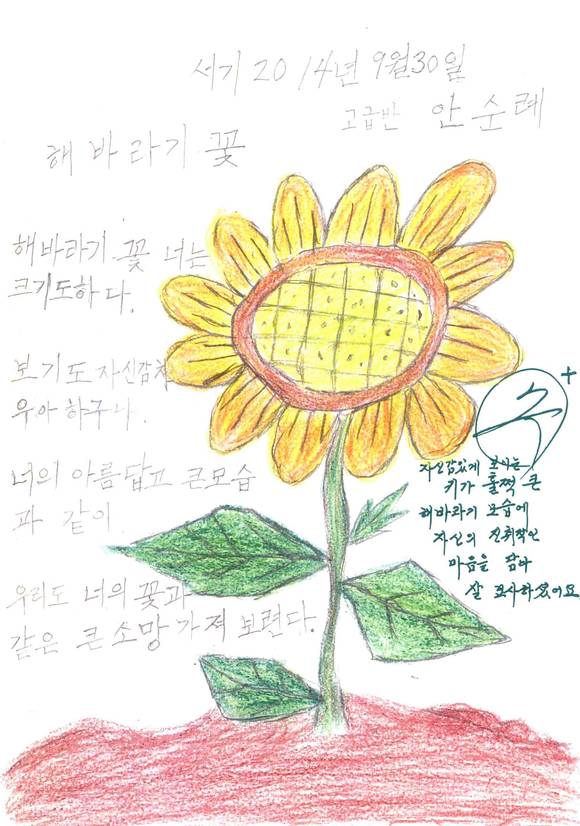 서기 2014년 9월30일
고급반 안순례
해바라기 꽃
해바라기 꽃 너는
크기도하다.
보기도 자신감차
우아하구나.
너의 아름답고 큰모습
과 같이
우리도 너의 꽃과
같은 큰소망가져보련다.
수
자신감있게 보이는
키가 훌쩍 큰
해바라기 모습에
자신의 진취적인
마음을 담아
잘 묘사하셨어요